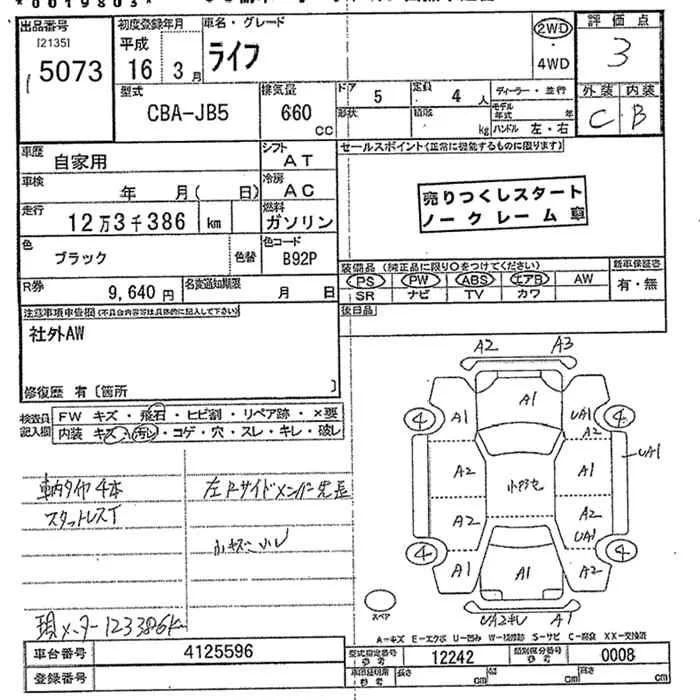 *0019803*
出品番号 初度登録年月 車名・グレード 2WD 評価点
[2135] 平成 ライフ ・ 3
15073 16 3月 4WD
型式 排気量 ドア 5 定員 4人 ディーラー・並行 外装 内装
CBA-JB5 660 CC 形状 積載 kg モデル年式 年 C B
ハンドル 左・右
車歴 自家用 シフト AT セールスポイント(正常に機能するものに限ります)
車検 年 月( 日) 冷房 AC
走行 12万3千386 km 燃料 ガソリン 売りつくしスタート
ノークレーム車
色 ブラック 色替 色コード B92P
装備品(純正品に限り○をつけてください) 新車保証書
R券 9,640円 名変通知期限 月 日 PS PW ABS エアB AW 有・無
SR ナビ TV カワ
注意事項車告欄(不具合内容等は具体的に記入して下さい) 後日品
社外AW
修復歴 有 [箇所 ]
検査員 FW キズ・飛石・ヒビ割・リペア跡・×要
記入欄 内装 キズ・汚レ・コゲ・穴・スレ・キレ・破レ
車内タイヤ4本
スタットレスT
小キズ小レ
現メーター123386K
A2 A3
A1
4 A1 UA1 4
A2
A2 A1 UA1
A2 A2
UA1
4 A1 A1 A2 4
スペア UA2キレ A1
A-キズ E-エクボ U-凹み W-補修跡 S-サビ C-腐食 XX-交換済
車台番号 4125596 型式指定番号 参考 12242 類別区分番号 参考 0008
登録番号 車両証明用 参考 長さ cm 幅 cm 高さ cm